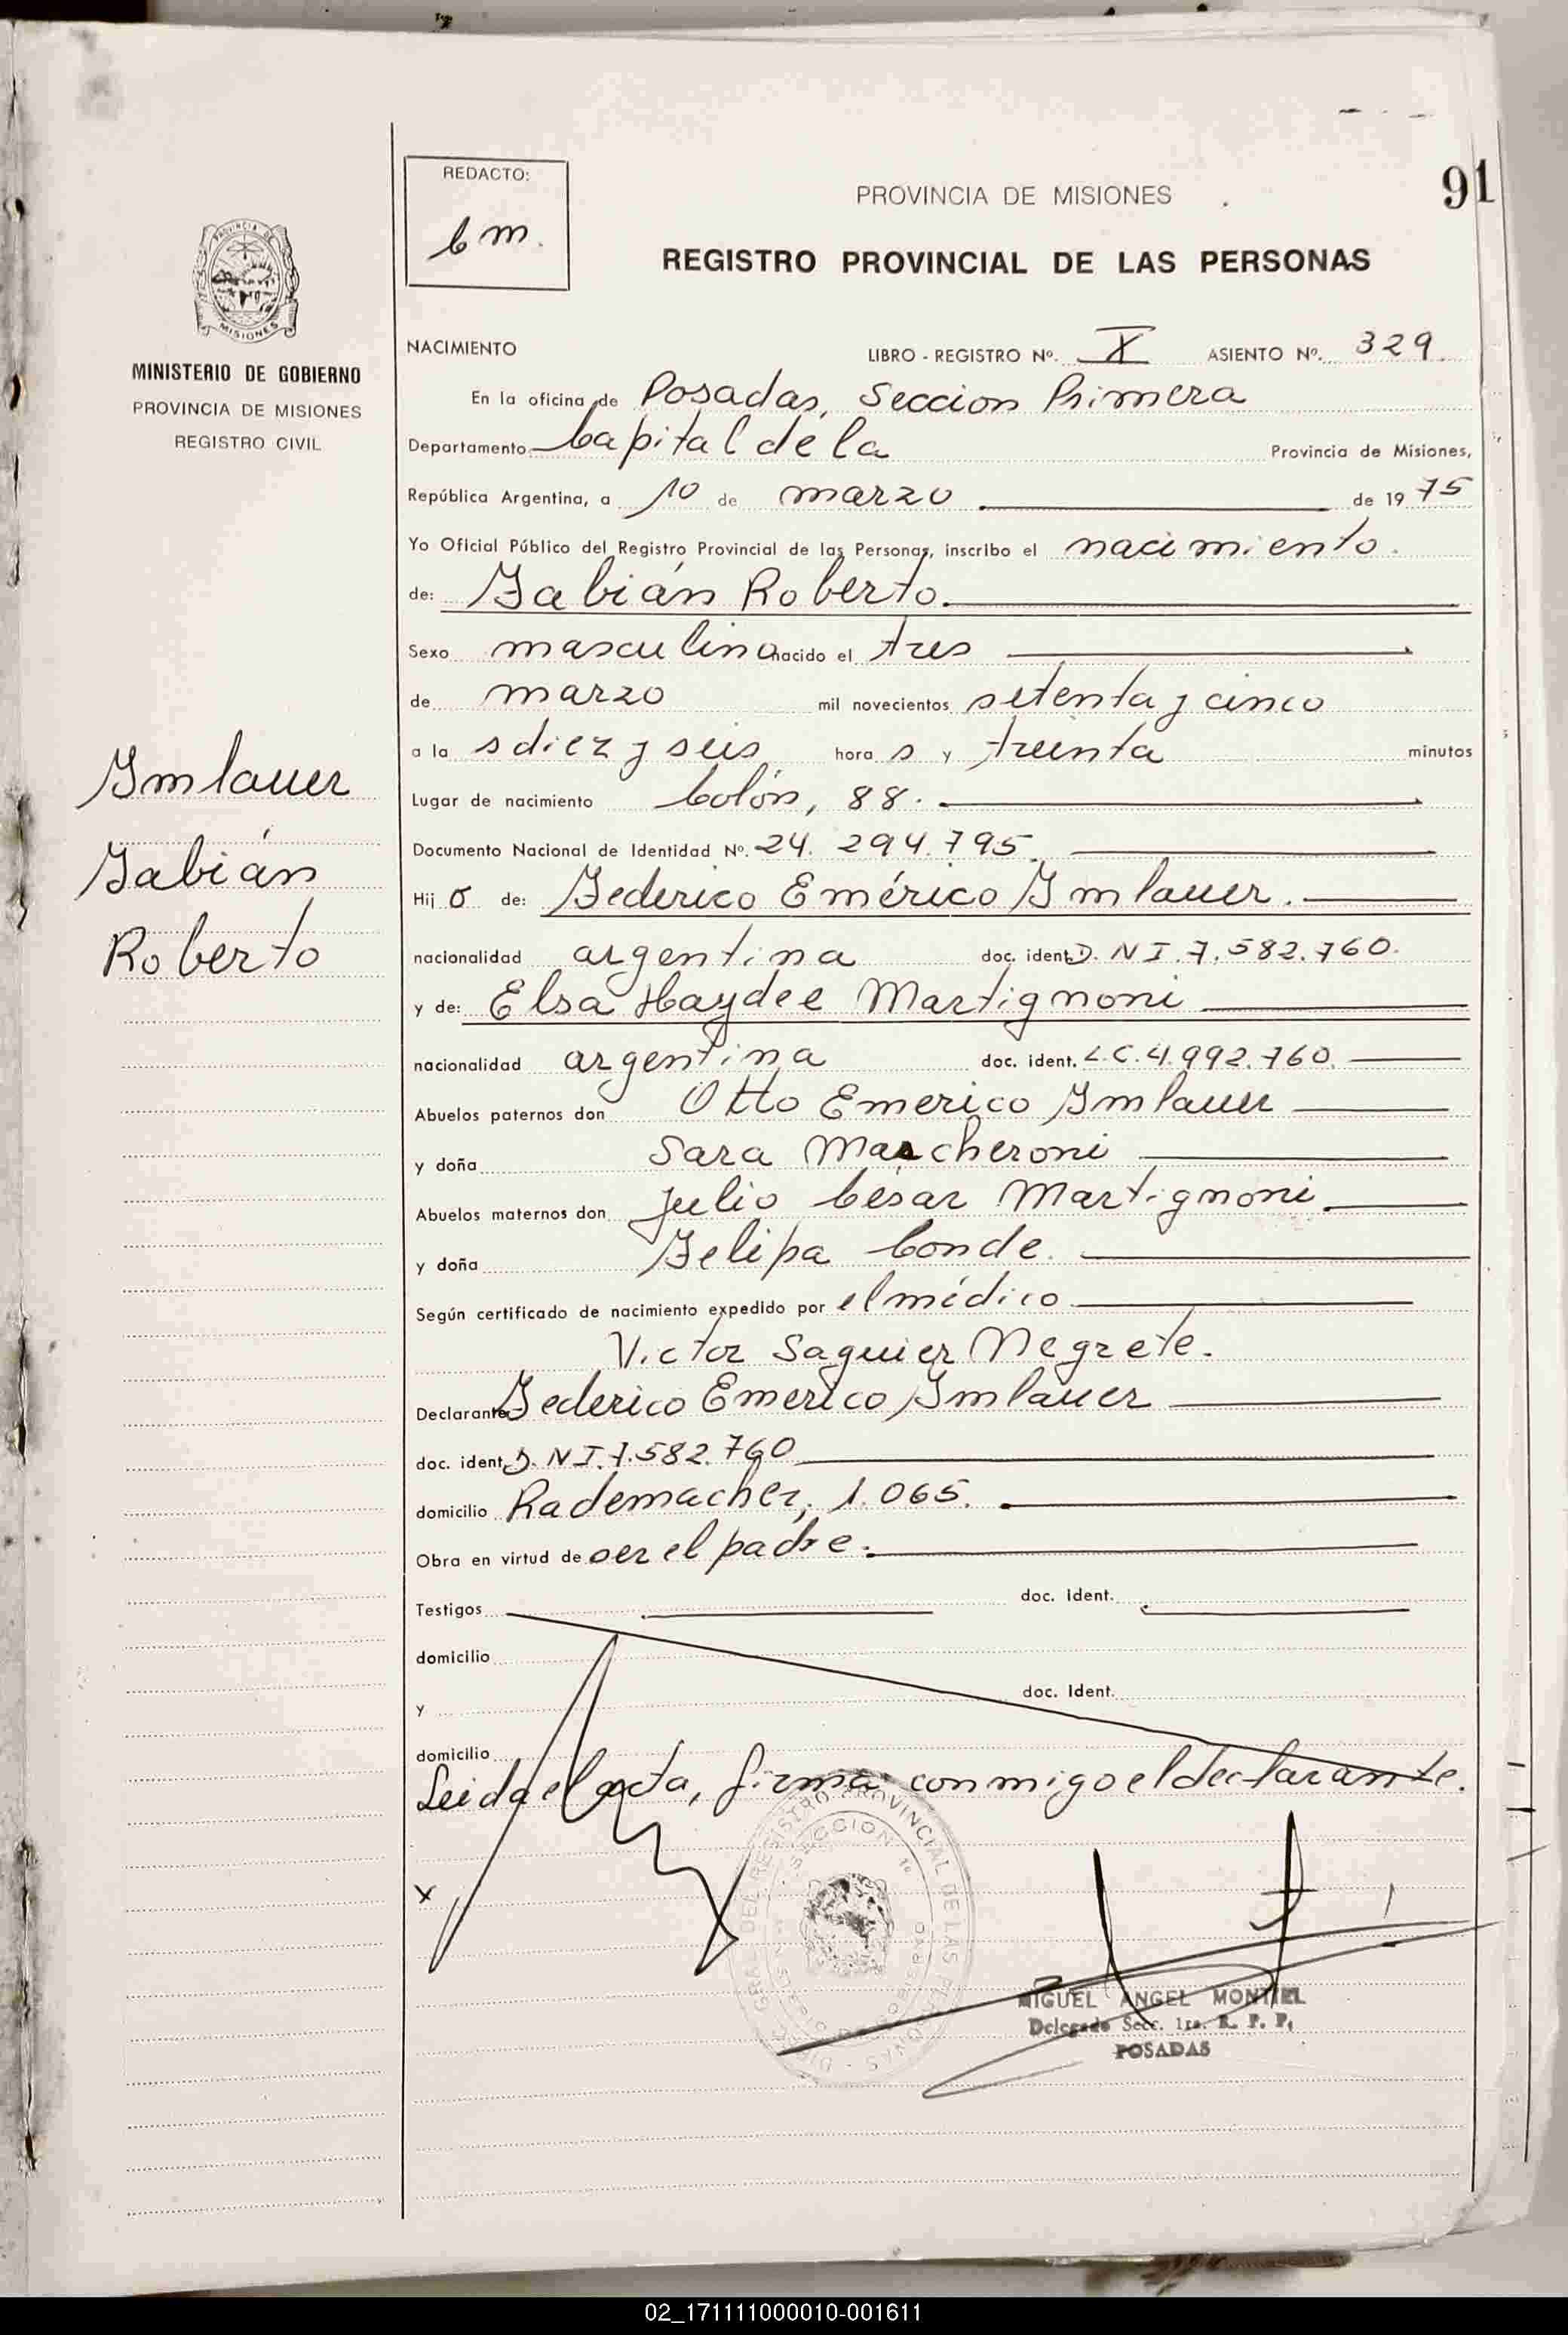 91
REDACTO:
C m.
PROVINCIA DE MISIONES
REGISTRO PROVINCIAL DE LAS PERSONAS
PROVINCIA DE
MISIONES
MINISTERIO DE GOBIERNO
PROVINCIA DE MISIONES
REGISTRO CIVIL
Imlauer
Fabián
Roberto
NACIMIENTO LIBRO - REGISTRO Nº. X ASIENTO Nº. 329.
En la oficina de Posadas, Seccion Primera
Departamento Capital de la Provincia de Misiones,
República Argentina, a 10 de marzo de 19 75
Yo Oficial Público del Registro Provincial de las Personas, inscribo el nacimiento.
de: Fabián Roberto.
Sexo masculino nacido el tres
de marzo mil novecientos setenta y cinco
a la s diez y seis hora s y treinta minutos
Lugar de nacimiento Colón, 88.
Documento Nacional de Identidad Nº. 24. 294.795.
Hij o de: Federico Emérico Imlauer.
nacionalidad argentina doc. ident. D. N I. 7.582.760.
y de: Elsa Haydee Martignoni
nacionalidad argentina doc. ident. L.C. 4.992.760.
Abuelos paternos don Otto Emerico Imlauer
y doña Sara Marcheroni
Abuelos maternos don Julio César Martignoni
y doña Felipa Conde.
Según certificado de nacimiento expedido por el médico
Victor Saguier Negrete.
Declarante Federico Emerico Imlauer
doc. ident. D. N I. 7.582.760
domicilio Rademacher, 1.065.
Obra en virtud de ser el padre.
Testigos doc. ident.
domicilio
y doc. ident.
domicilio
Leida el acta, firma conmigo el declarante.
x
DEL REGISTRO PROVINCIAL DE LAS PERSONAS
SECCION 1º
MIGUEL ANGEL MONTIEL
Delegado Secc. 1ra. R. P. P.
POSADAS
02_171111000010-001611